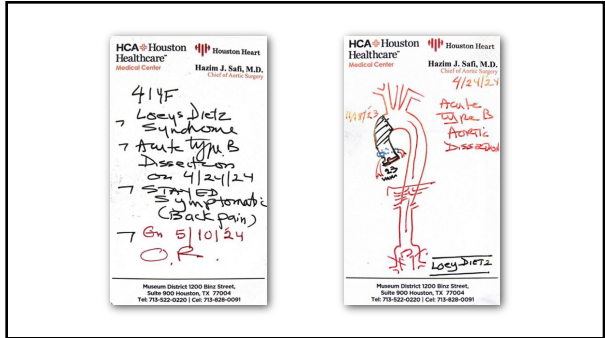 HCA Houston
Healthcare™
Medical Center
Houston Heart
Hazim J. Safi, M.D.
Chief of Aortic Surgery
41YF
Loeys Dietz
Syndrome
Acute Type B
Dissection
on 4/24/24
STAYED
Symptomatic
(Back pain)
On 5/10/24
O.R.
Museum District 1200 Binz Street,
Suite 900 Houston, TX 77004
Tel: 713-522-0220 | Cel: 713-828-0091
HCA Houston
Healthcare™
Medical Center
Houston Heart
Hazim J. Safi, M.D.
Chief of Aortic Surgery
4/24/24
Acute
Type B
Aortic
Dissection
23
Loey-Dietz
Museum District 1200 Binz Street,
Suite 900 Houston, TX 77004
Tel: 713-522-0220 | Cel: 713-828-0091